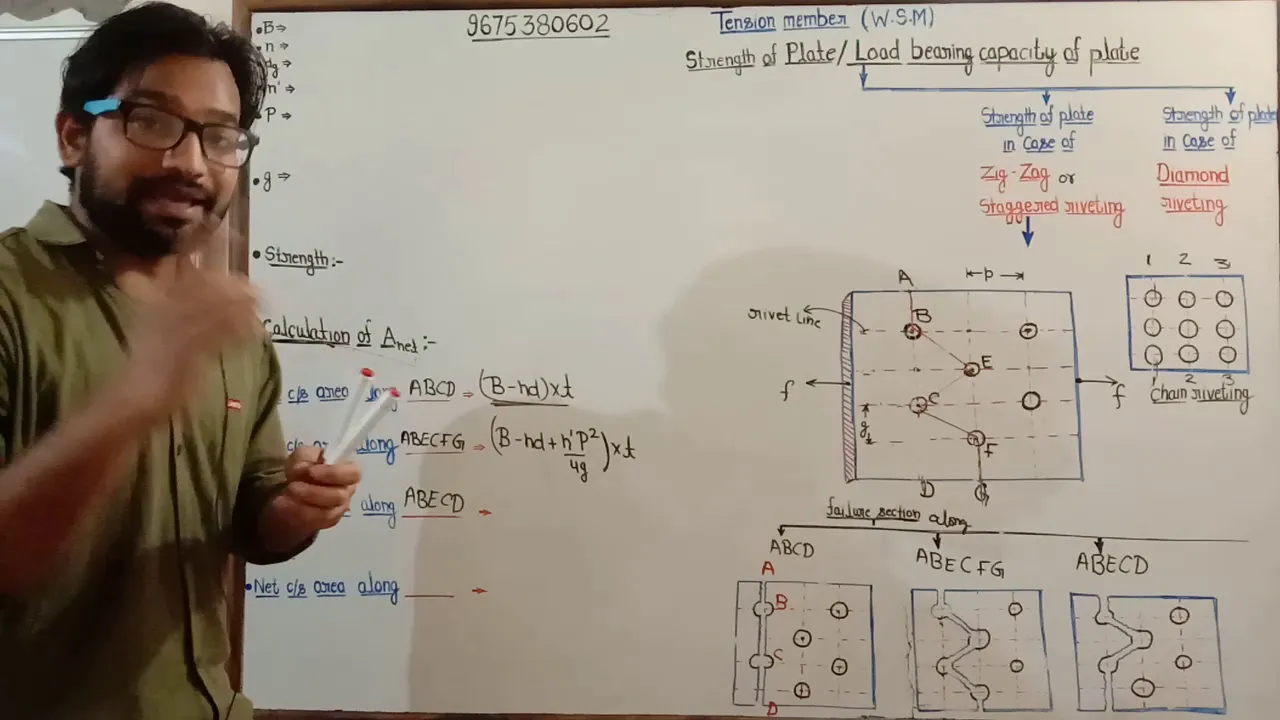 9675380602
Tension member (W.S.M)
Strength of Plate/Load bearing capacity of plate
• B⇒
• n ⇒
dg ⇒
n' ⇒
• P ⇒
• g ⇒
• Strength:-
Calculation of Anet:-
c/s area along ABCD ⇒ (B-nd)×t
c/s area along ABECFG ⇒ (B-nd+n'P²/4g)×t
along ABECD →
• Net c/s area along ____ →
Strength of plate
in Case of
Zig-Zag or
Staggered riveting
Strength of plate
in Case of
Diamond
riveting
A
P
rivet line
B
E
C
F
g
D
G
f
f
1 2 3
1 2 3
Chain riveting
failure section along
ABCD
A
B
C
D
ABECFG
ABECD